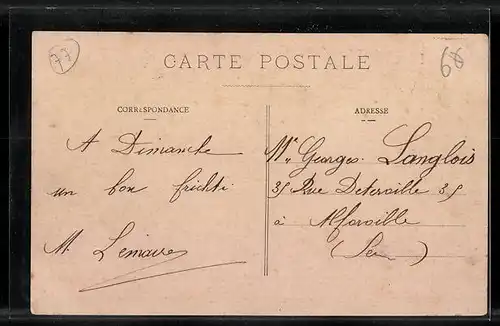 77
68
CARTE POSTALE
CORRESPONDANCE
ADRESSE
A Dimanche
un bon frichti
M. Lemaire
Mr Georges Langlois
35 Rue Deteraille 35
à Alforville
(Seine)